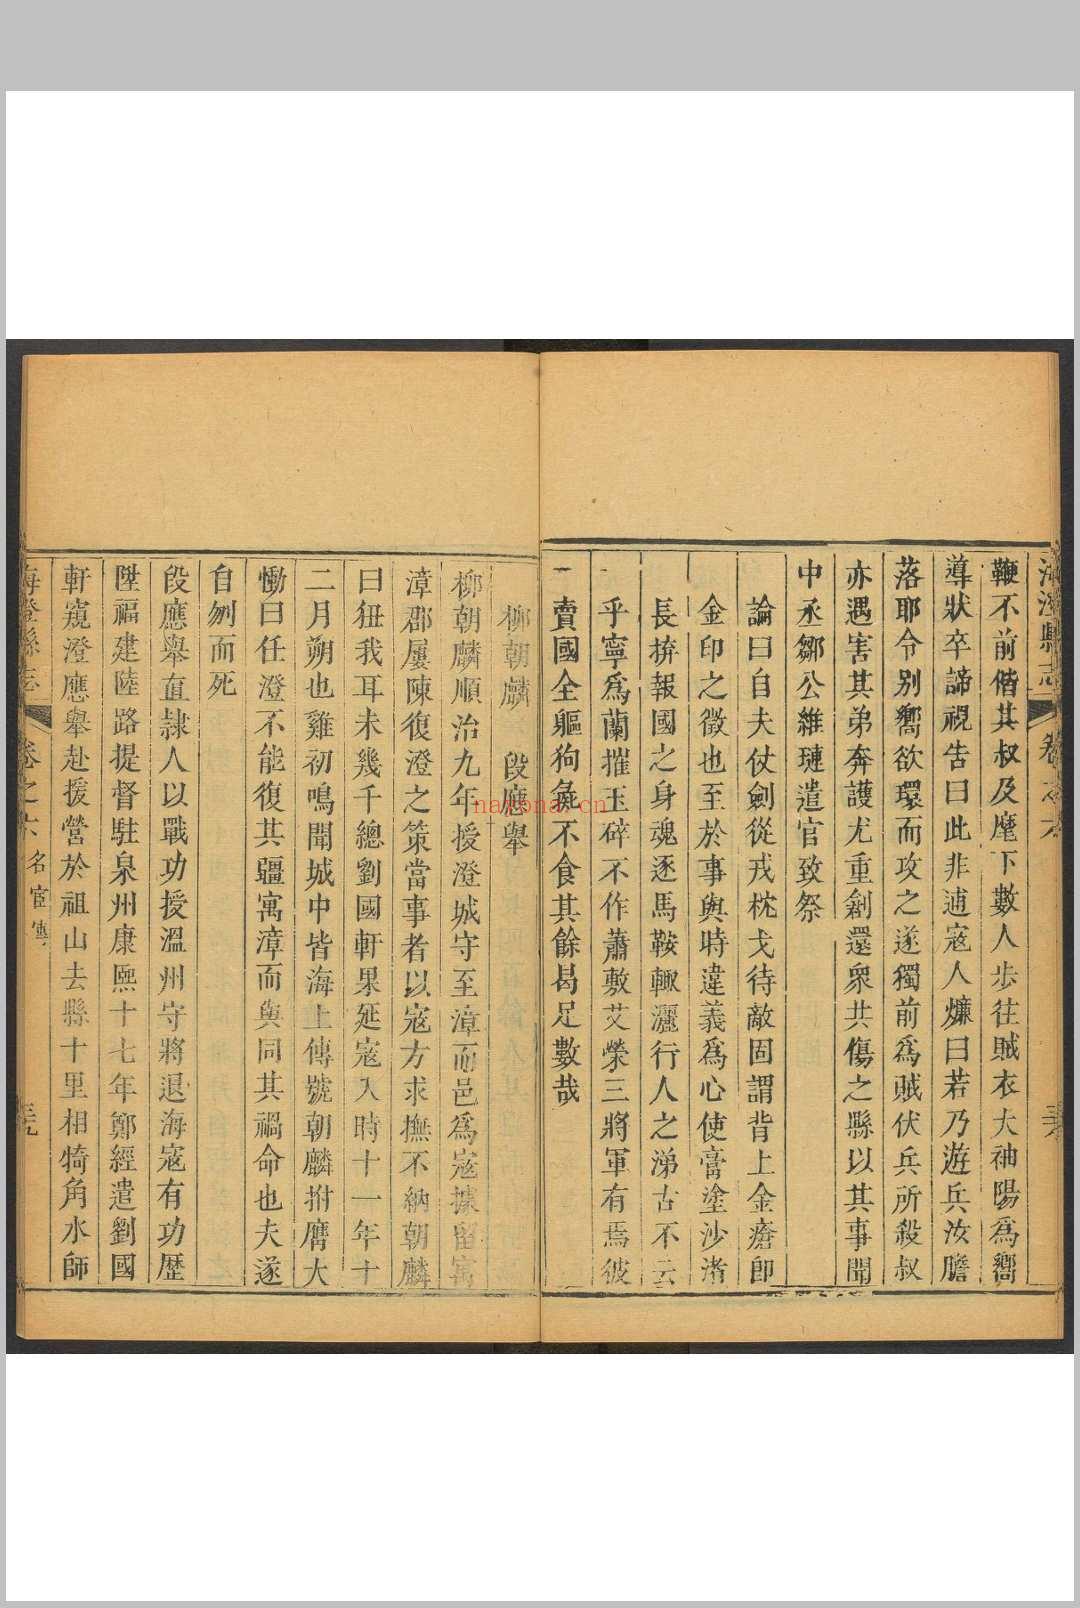 海澄縣志 卷之六
鞭不前偕其叔及麾下數人步往賊衣大袖陽爲嚮
導狀卒諦視吿曰此非逋寇人㷰曰若乃遊兵汝膽
落耶令别嚮欲環而攻之遂獨前爲賊伏兵所殺叔
亦遇害其弟奔護尤重創還衆共傷之縣以其事聞
中丞鄒公維璉遣官致祭
論曰自夫仗劍從戎枕戈待敵固謂背上金瘡卽
金印之徵也至於事與時違義爲心使膏塗沙渚
長捹報國之身魂逐馬鞍輙灑行人之涕古不云
乎寧爲蘭摧玉碎不作蕭敷艾榮三將軍有焉彼
賣國全軀狗彘不食其餘曷足數哉
柳朝麟 段應舉
柳朝麟順治九年授澄城守至漳而邑爲寇據留寓
漳郡屢陳復澄之策當事者以寇方求撫不納朝麟
曰狃我耳未幾千總劉國軒果延寇入時十一年十
二月朔也雞初鳴聞城中皆海上傳號朝麟拊膺大
慟曰任澄不能復其疆寓漳而與同其禍命也夫遂
自刎而死
段應舉直隷人以戰功授溫州守將退海寇有功歷
陞福建陸路提督駐泉州康熙十七年鄭經遣劉國
軒窺澄應舉赴援營於祖山去縣十里相犄角水師
海澄縣志 卷之六 名宦傳 三九
naxona.cn